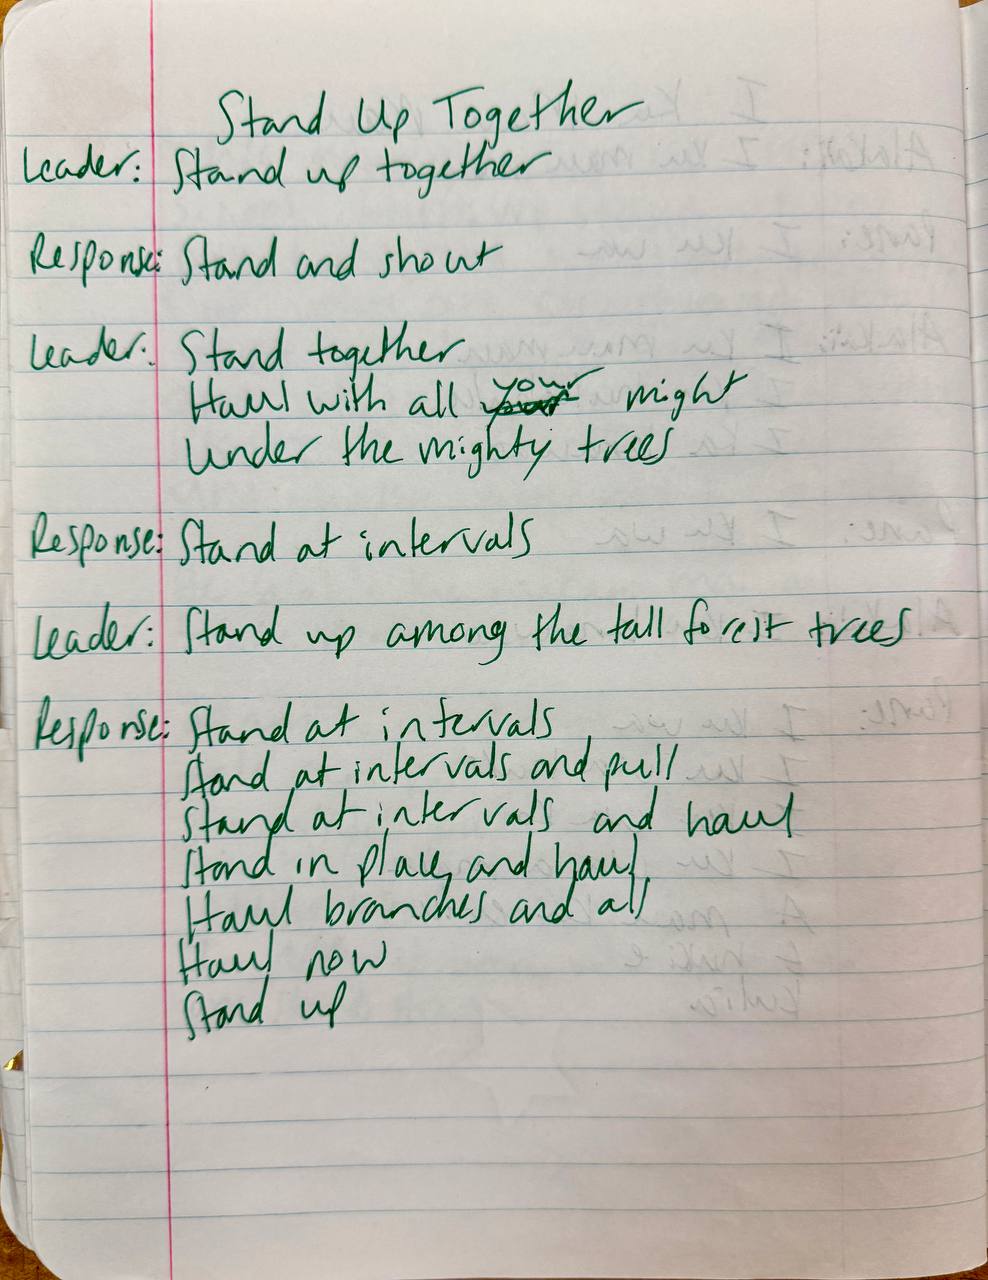 Stand Up Together
Leader: Stand up together
Response: Stand and shout
Leader: Stand together
Haul with all your might
Under the mighty trees
Response: Stand at intervals
Leader: Stand up among the tall forest trees
Response: Stand at intervals
Stand at intervals and pull
Stand at intervals and haul
Stand in place and haul
Haul branches and all
Haul now
Stand up